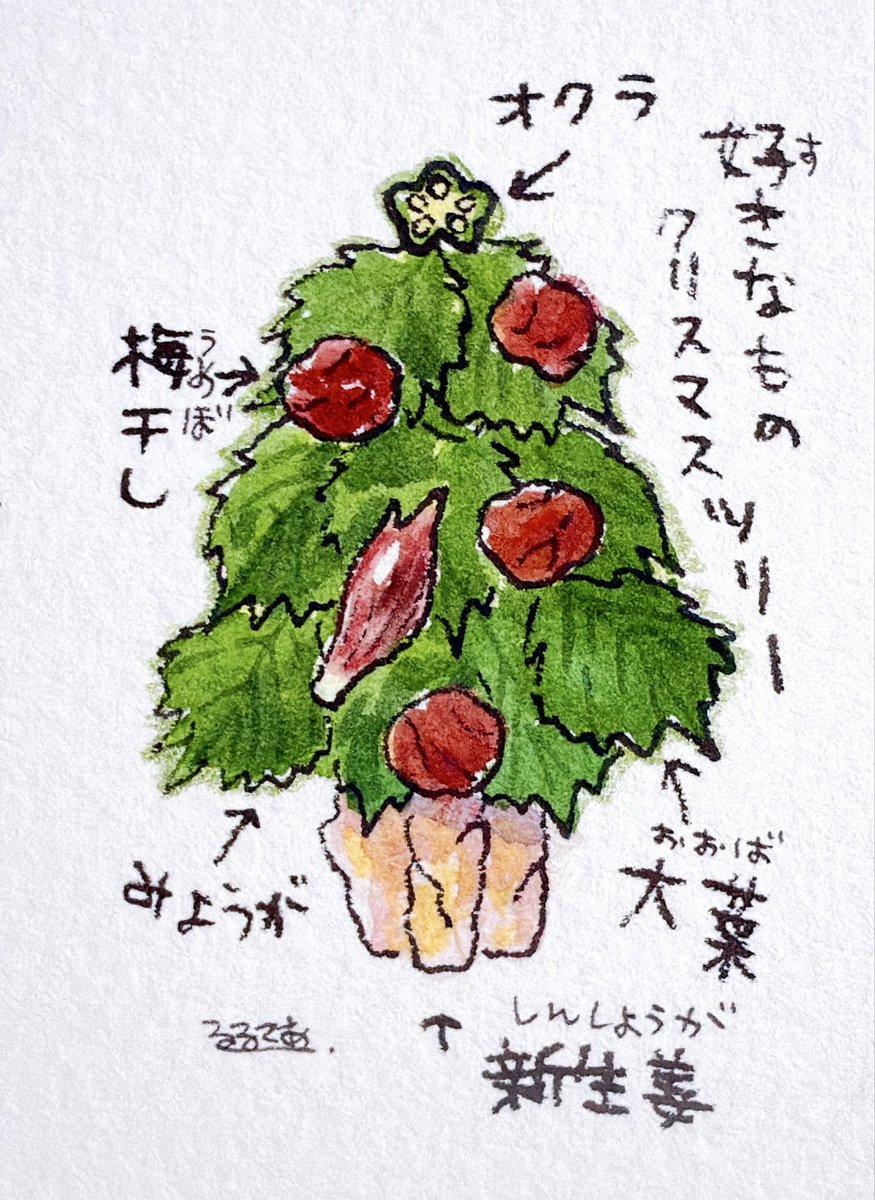 好きなもの
す
クリスマスツリー
オクラ
梅干し
うめぼ
みょうが
大葉
おおば
しんしょうが
新生姜
るるてあ.